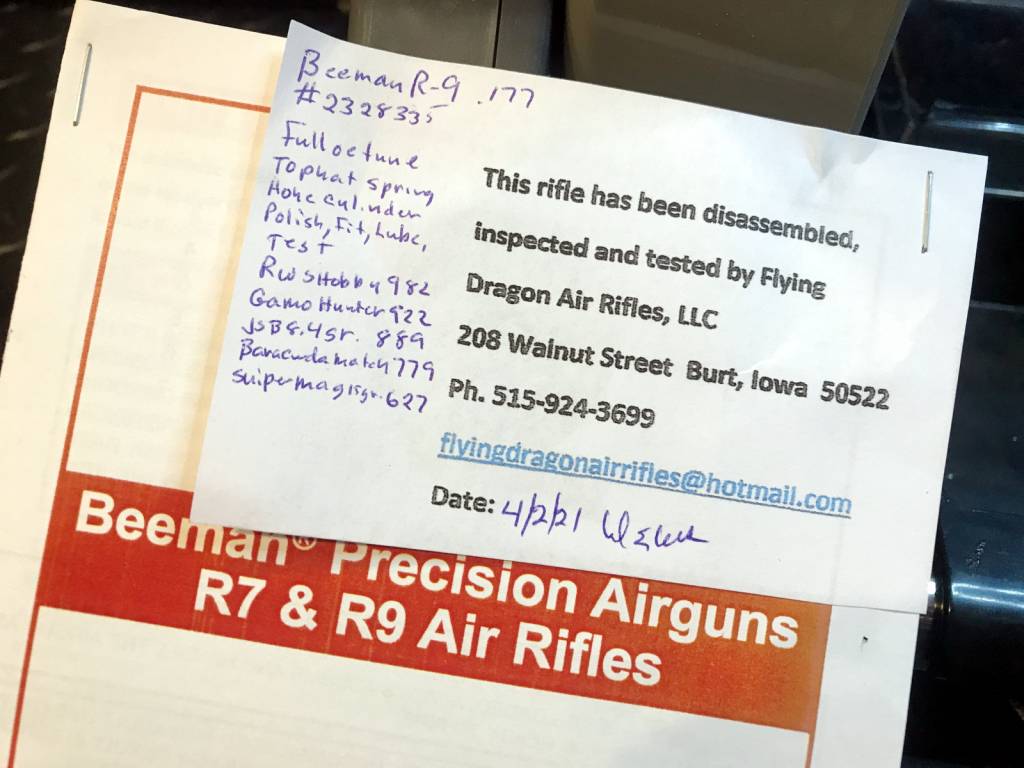 Beeman R-9 .177
#2328335
Full oc tune
Tophat spring
Hone culinder
Polish, Fit, Lube,
Test
RWS Hobby 982
Gamo Hunter 922
JSB 8.4gr. 889
Baracuda match 779
Snipermag 15gr. 627
This rifle has been disassembled,
inspected and tested by Flying
Dragon Air Rifles, LLC
208 Walnut Street Burt, Iowa 50522
Ph. 515-924-3699
flyingdragonairrifles@hotmail.com
Date: 4/2/21
Beeman® Precision Airguns
R7 & R9 Air Rifles